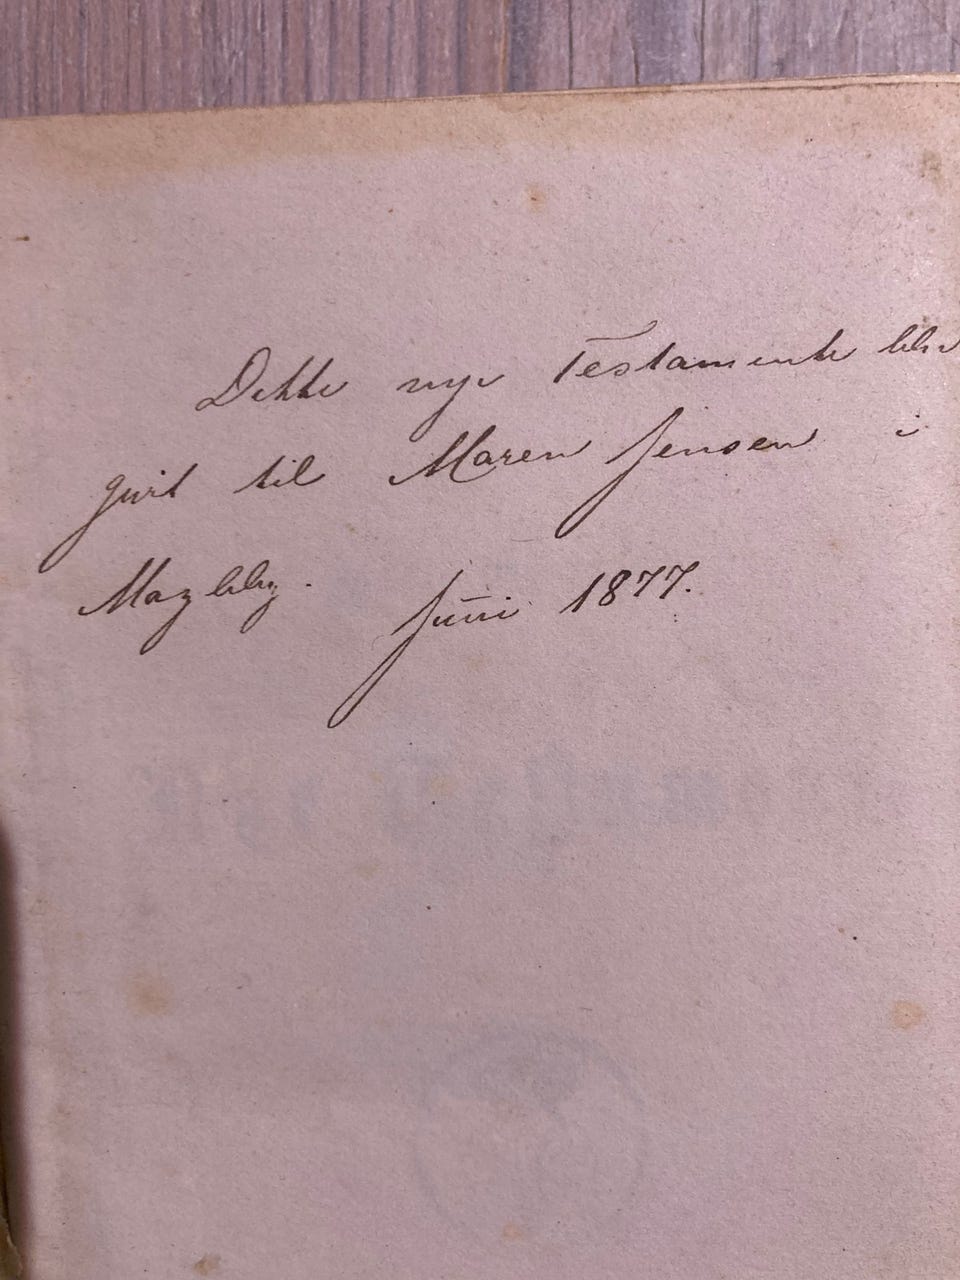 Dette nye Testamente blev
givet til Maren Jensen i
Magleby. Juni 1877.